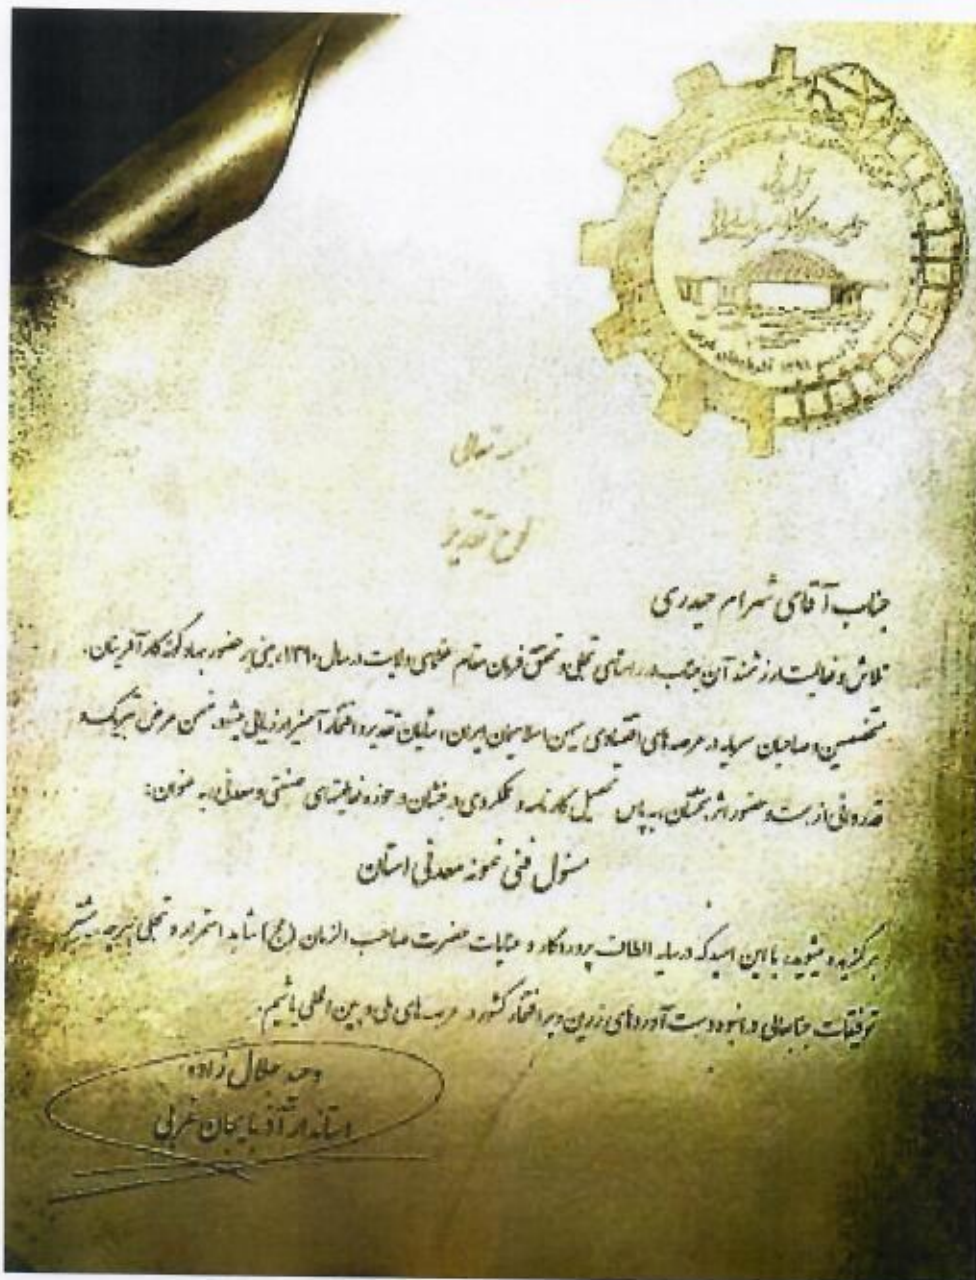 بسمه تعالی
لوح تقدیر
جناب آقای شهرام حیدری
تلاش و فعالیت ارزشمند آن جناب در راستای تجلی و تحقق فرمان مقام عظمای ولایت در سال ۱۳۹۰، مبنی بر حضور جهادگونه کارآفرینان،
متخصصین و صاحبان سرمایه در عرصه های اقتصادی میهن اسلامیمان ایران، شایان تقدیر و افتخار آمیز ارزیابی میشود. ضمن عرض تبریک و
قدردانی از همت و حضور اثربخشتان، به پاس تحصیل کارنامه و عملکردی درخشان در حوزه فعالیتهای صنعتی و معدنی، به عنوان:
مسئول فنی نمونه معدنی استان
برگزیده میشوید، با این امید که در سایه الطاف پروردگار و عنایات حضرت صاحب الزمان (عج) شاهد استمرار و تجلی هرچه بیشتر
توفیقات جنابعالی در انبوه دست آوردهای زرین و پر افتخار کشور در عرصه های ملی و بین المللی باشیم.
وحید جلال زاده
استاندار آذربایجان غربی